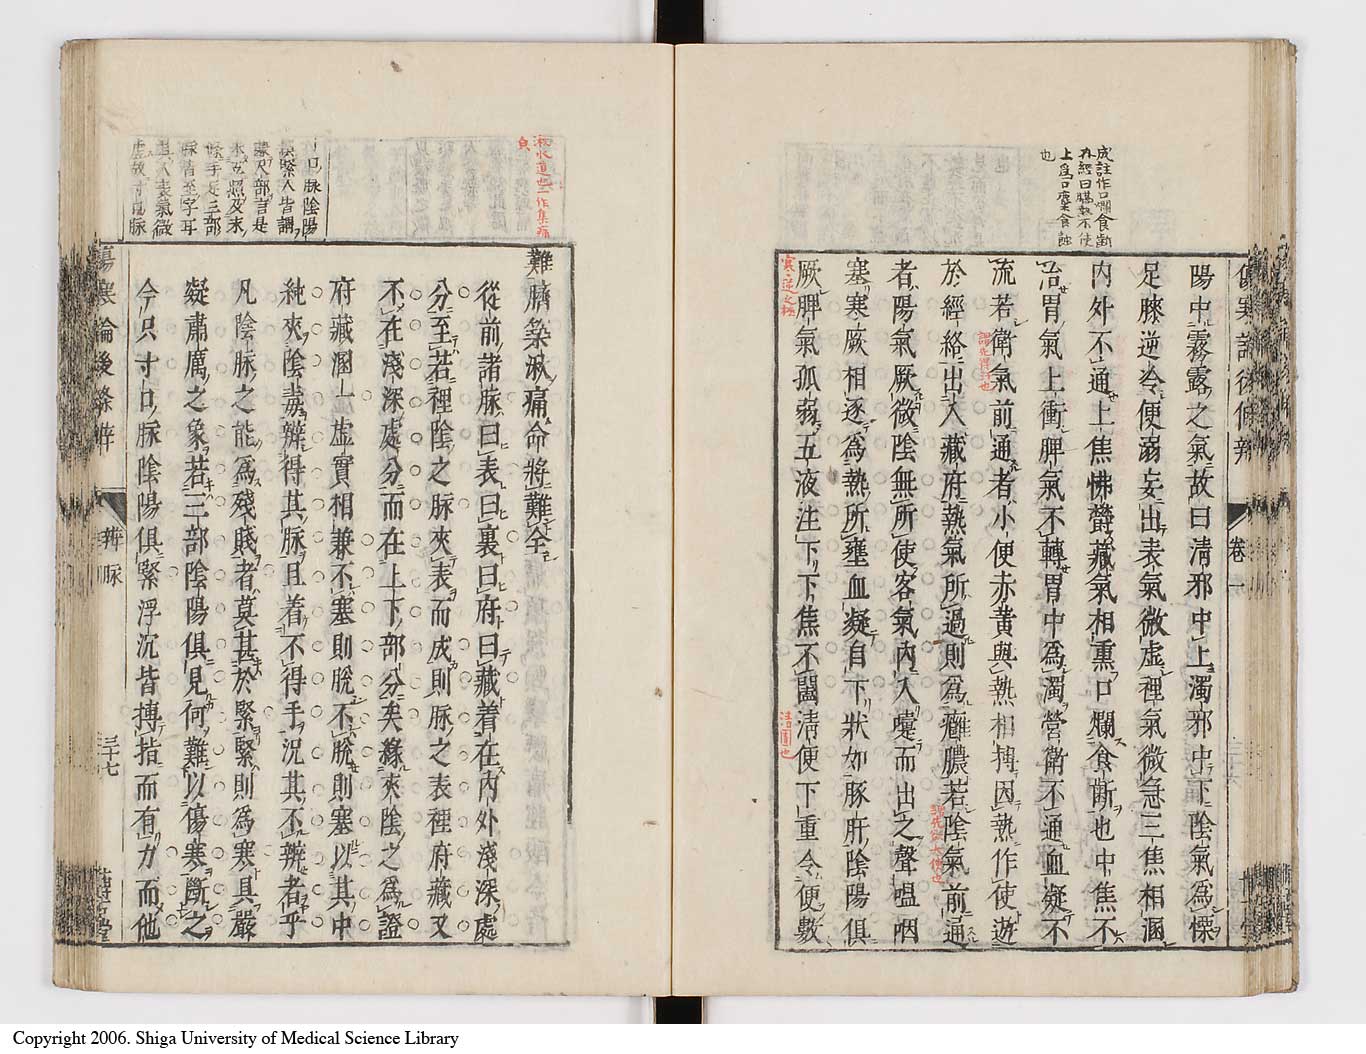 成註作口爛食齗
内經曰膈熱不使
上爲口糜食蝕
也
陽中霧露之氣故曰清邪中上濁邪中下陰氣爲慄
足膝逆冷便溺妄出表氣微虛裡氣微急三焦相溷
内外不通上焦怫欝藏氣相熏口爛食齗也中焦不
治胃氣上衝脾氣不轉胃中爲濁營衛不通血凝不
流若衛氣前通者小便赤黄與熱相搏因熱作使遊
於經絡出入藏府熱氣所過則爲癰膿若陰氣前通
者陽氣厥微陰無所使客氣内入嚏而出之聲嗢咽
塞寒厥相逐爲熱所壅血凝自下狀如豚肝陰陽俱
厥脾氣孤弱五液注下下焦不闔清便下重令便數
卷一
難臍築湫痛命將難全
從前諸脉曰表曰裏曰府曰藏着在内外淺深處
分至若裡陰之脉夾表而成則脉之表裡府藏又
不在淺深處分而在上下部分矣緣夾陰之爲證
府藏溷一虛實相兼不塞則脫不脫則塞以其中
純夾陰毒辨得其脉且着不得手况其不辨者乎
凡陰脉之能爲殘賊者莫甚於緊緊則爲寒具嚴
凝肅厲之象若三部陰陽俱見何難以傷寒斷之
今只寸口脉陰陽俱緊浮沉皆搏指而有力而他
寸口脉陰陽
俱緊人皆謂
兼尺部言是
未照及末
條手足三部
脉皆至字耳
表氣微
虛故寸口脉
傷寒論後條辨
辨脉
三十七